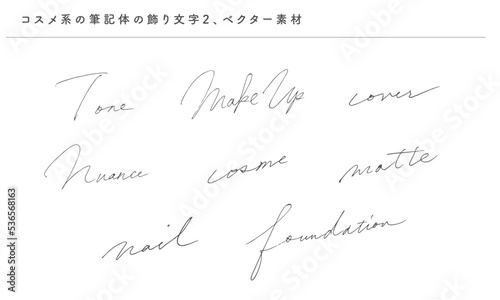 コスメ系の筆記体の飾り文字2、ベクター素材
Tone MakeUp cover
Nuance cosme matte
nail foundation
Adobe Stock | #536568163